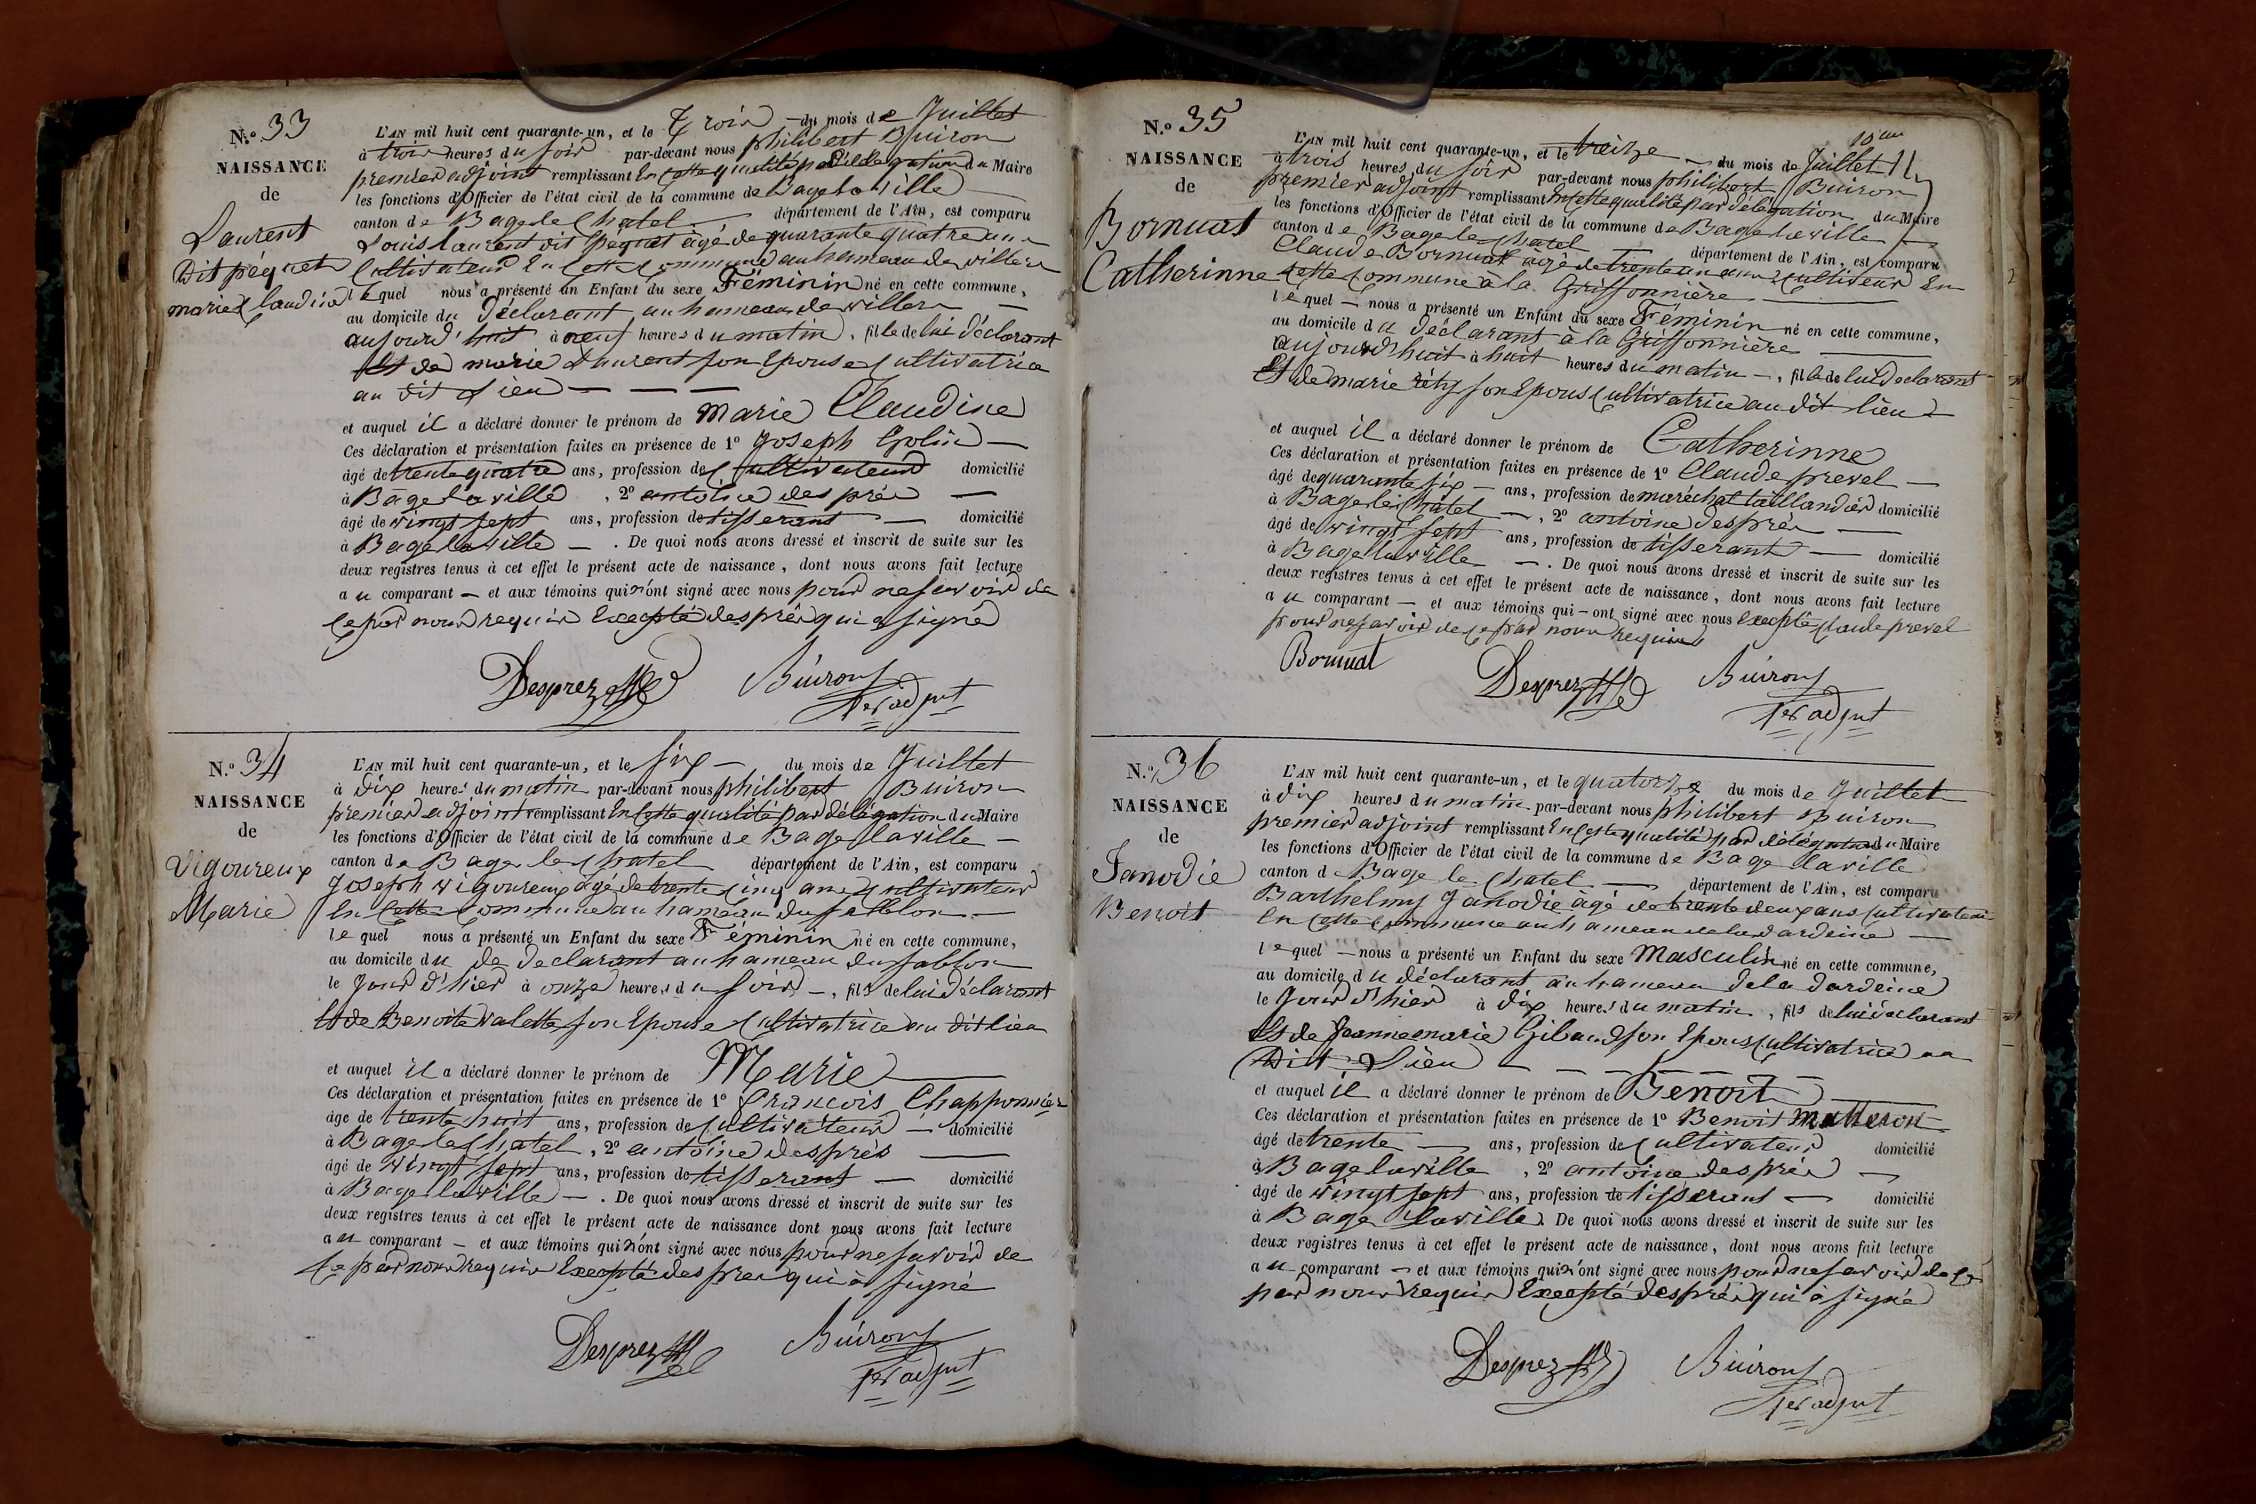 N.o 33
NAISSANCE
de
Laurent
Dit péquet
marie Claudine
L'AN mil huit cent quarante-un, et le Trois du mois de Juillet
à trois heures du soir par-devant nous philibert Buiron
premier adjoint remplissant En cette qualité par délégation du Maire
les fonctions d'Officier de l'état civil de la commune de Bage la ville
canton de Bage le Chatel département de l'Ain, est comparu
Louis Laurent dit pequet agé de quarante quatre ans
Cultivateur En Cette Commune au hameau de villers
lequel nous a présenté un Enfant du sexe Féminin né en cette commune,
au domicile du déclarant au hameau de villers
aujourd'huit à neuf heures du matin, fille de lui déclarant
Et de marie Laurent son Epouse Cultivatrice
au dit Lieu
et auquel il a déclaré donner le prénom de Marie Claudine
Ces déclaration et présentation faites en présence de 1o Joseph
âgé de trente quatre ans, profession de Cultivateur domicilié
à Bage la ville, 2o antoine després
âgé de vingt sept ans, profession de tisserant domicilié
à Bage la ville. De quoi nous avons dressé et inscrit de suite sur les
deux registres tenus à cet effet le présent acte de naissance, dont nous avons fait lecture
au comparant et aux témoins qui n'ont signé avec nous pour ne savoir de
Ce par nous requis Excepté després qui a signé
Desprez Buiron
1er adjnt
N.o 34
NAISSANCE
de
Vigoureux
Marie
L'AN mil huit cent quarante-un, et le six du mois de Juillet
à dix heures du matin par-devant nous philibert Buiron
premier adjoint remplissant En Cette qualité par délégation du Maire
les fonctions d'Officier de l'état civil de la commune de Bage la ville
canton de Bage le Chatel département de l'Ain, est comparu
Joseph vigoureux agé de trente Cinq ans Cultivateur
En Cette Commune au hameau du sablon
lequel nous a présenté un Enfant du sexe Féminin né en cette commune,
au domicile du de declarant au hameau du sablon
le Jour d'hier à onze heures du soir, fils de lui déclarant
Et de Benoite valette son Epouse Cultivatrice au dit lieu
et auquel il a déclaré donner le prénom de Marie
Ces déclaration et présentation faites en présence de 1o François Chapponnier
âgé de trente huit ans, profession de Cultivateur domicilié
à Bage le Chatel, 2o antoine després
âgé de vingt sept ans, profession de tisserant domicilié
à Bage la ville. De quoi nous avons dressé et inscrit de suite sur les
deux registres tenus à cet effet le présent acte de naissance dont nous avons fait lecture
au comparant et aux témoins qui n'ont signé avec nous pour ne savoir de
Ce par nous requis Excepté després qui à signé
Desprez Buiron
1er adjnt
N.o 35
NAISSANCE
de
Bornuat
Catherinne
L'AN mil huit cent quarante-un, et le treize du mois de Juillet
à trois heures du soir par-devant nous philibert Buiron
premier adjoint remplissant En Cette qualité par délégation du Maire
les fonctions d'Officier de l'état civil de la commune de Bage la ville
canton de Bage le Chatel département de l'Ain, est comparu
Claude Bornuat agé de trente un ans Cultivateur En
Cette Commune à la Griffonnière
lequel nous a présenté un Enfant du sexe Féminin né en cette commune,
au domicile du déclarant à la Griffonnière
aujourdhuit à huit heures du matin, fille de lui déclarant
Et de marie réty son Epous Cultivatrice au dit lieu
et auquel il a déclaré donner le prénom de Catherinne
Ces déclaration et présentation faites en présence de 1o Claude prevel
âgé de quarante six ans, profession de maréchal taillandier domicilié
à Bage le Chatel, 2o antoine després
âgé de vingt sept ans, profession de tisserant domicilié
à Bage la ville. De quoi nous avons dressé et inscrit de suite sur les
deux registres tenus à cet effet le présent acte de naissance, dont nous avons fait lecture
au comparant et aux témoins qui ont signé avec nous Excepté Claude prevel
pour ne savoir de Ce par nous requis
Bornuat Desprez Buiron
1er adjnt
N.o 36
NAISSANCE
de
Janodie
Benoit
L'AN mil huit cent quarante-un, et le quatorze du mois de Juillet
à dix heures du matin par-devant nous philibert Buiron
premier adjoint remplissant En Cette qualité par délégation du Maire
les fonctions d'Officier de l'état civil de la commune de Bage la ville
canton de Bage le Chatel département de l'Ain, est comparu
Barthelmy Janodie agé de trente deux ans Cultivateur
En Cette Commune au hameau de la dardeine
lequel nous a présenté un Enfant du sexe Masculin né en cette commune,
au domicile du déclarant au hameau de la dardeine
le Jour d'hier à dix heures du matin, fils de lui déclarant
Et de Jeanne marie Giband son Epous Cultivatrice au
Dit Lieu
et auquel il a déclaré donner le prénom de Benoit
Ces déclaration et présentation faites en présence de 1o Benoit
âgé de trente ans, profession de Cultivateur domicilié
à Bage la ville, 2o antoine després
âgé de vingt sept ans, profession de tisserant domicilié
à Bage la ville. De quoi nous avons dressé et inscrit de suite sur les
deux registres tenus à cet effet le présent acte de naissance, dont nous avons fait lecture
au comparant et aux témoins qui n'ont signé avec nous pour ne savoir de Ce
par nous requis Excepté després qui à signé
Desprez Buiron
1er adjnt